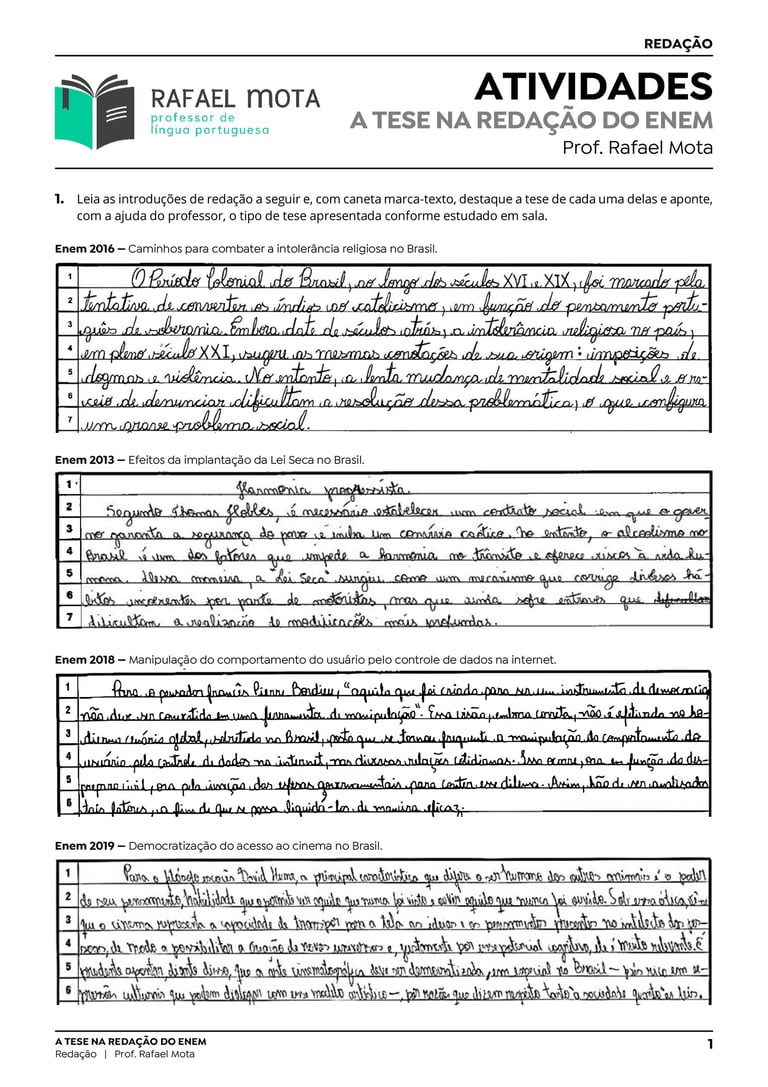 REDAÇÃO
RAFAEL MOTA
professor de
língua portuguesa
ATIVIDADES
A TESE NA REDAÇÃO DO ENEM
Prof. Rafael Mota
1. Leia as introduções de redação a seguir e, com caneta marca-texto, destaque a tese de cada uma delas e aponte,
com a ajuda do professor, o tipo de tese apresentada conforme estudado em sala.
Enem 2016 — Caminhos para combater a intolerância religiosa no Brasil.
1 O Período Colonial do Brasil, ao longo dos séculos XVI e XIX, foi marcado pela
2 tentativa de converter os índios ao catolicismo, em função do pensamento portu-
3 guês de soberania. Embora date de séculos atrás, a intolerância religiosa no país,
4 em pleno século XXI, sugere as mesmas conotações de sua origem: imposições de
5 dogmas e violência. No entanto, a lenta mudança de mentalidade social e o re-
6 ceio de denunciar dificultam a resolução dessa problemática, o que configura
7 um grave problema social.
Enem 2013 — Efeitos da implantação da Lei Seca no Brasil.
1 Harmonia progressista.
2 Segundo Thomas Hobbes, é necessário estabelecer um contrato social em que o gover-
3 no garanta a segurança do povo e iniba um convívio caótico. No entanto, o alcoolismo no
4 Brasil é um dos fatores que impede a harmonia no trânsito e oferece riscos à vida hu-
5 mana. Dessa maneira, a "Lei Seca" surgiu como um mecanismo que corrige diversos há-
6 bitos incoerentes por parte de motoristas, mas que ainda sofre entraves que
7 dificultam a realização de modificações mais profundas.
Enem 2018 — Manipulação do comportamento do usuário pelo controle de dados na internet.
1 Para o pensador francês Pierre Bordieu, "aquilo que foi criado para ser um instrumento de democracia
2 não deve ser convertido em uma ferramenta de manipulação". Essa visão, embora correta, não é efetivada no ho-
3 dierno cenário global, sobretudo no Brasil, posto que se tornou frequente a manipulação do comportamento do
4 usuário pelo controle de dados na internet, nas diversas relações cotidianas. Isso ocorre, ora em função do des-
5 preparo civil, ora pela inação das esferas governamentais para conter esse dilema. Assim, hão de ser analisados
6 tais fatores, a fim de que se possa liquidá-los de maneira eficaz.
Enem 2019 — Democratização do acesso ao cinema no Brasil.
1 Para o filósofo escocês David Hume, a principal característica que difere o ser humano dos outros animais é o poder
2 de seu pensamento, habilidade que o permite ver aquilo que nunca foi visto e ouvir aquilo que nunca foi ouvido. Sob essa ótica, vê-se
3 que o cinema representa a capacidade de transpor para a tela as ideias e os pensamentos presentes no intelecto das pes-
4 soas, de modo a possibilitar a criação de novos universos e, justamente por esse potencial cognitivo, ele é muito relevante. É
5 prudente apontar, diante disso, que a arte cinematográfica deve ser democratizada, em especial no Brasil — país rico em ex-
6 pressões culturais que podem dialogar com esse modelo artístico —, por razões que dizem respeito tanto à sociedade quanto às leis.
A TESE NA REDAÇÃO DO ENEM
Redação | Prof. Rafael Mota
1